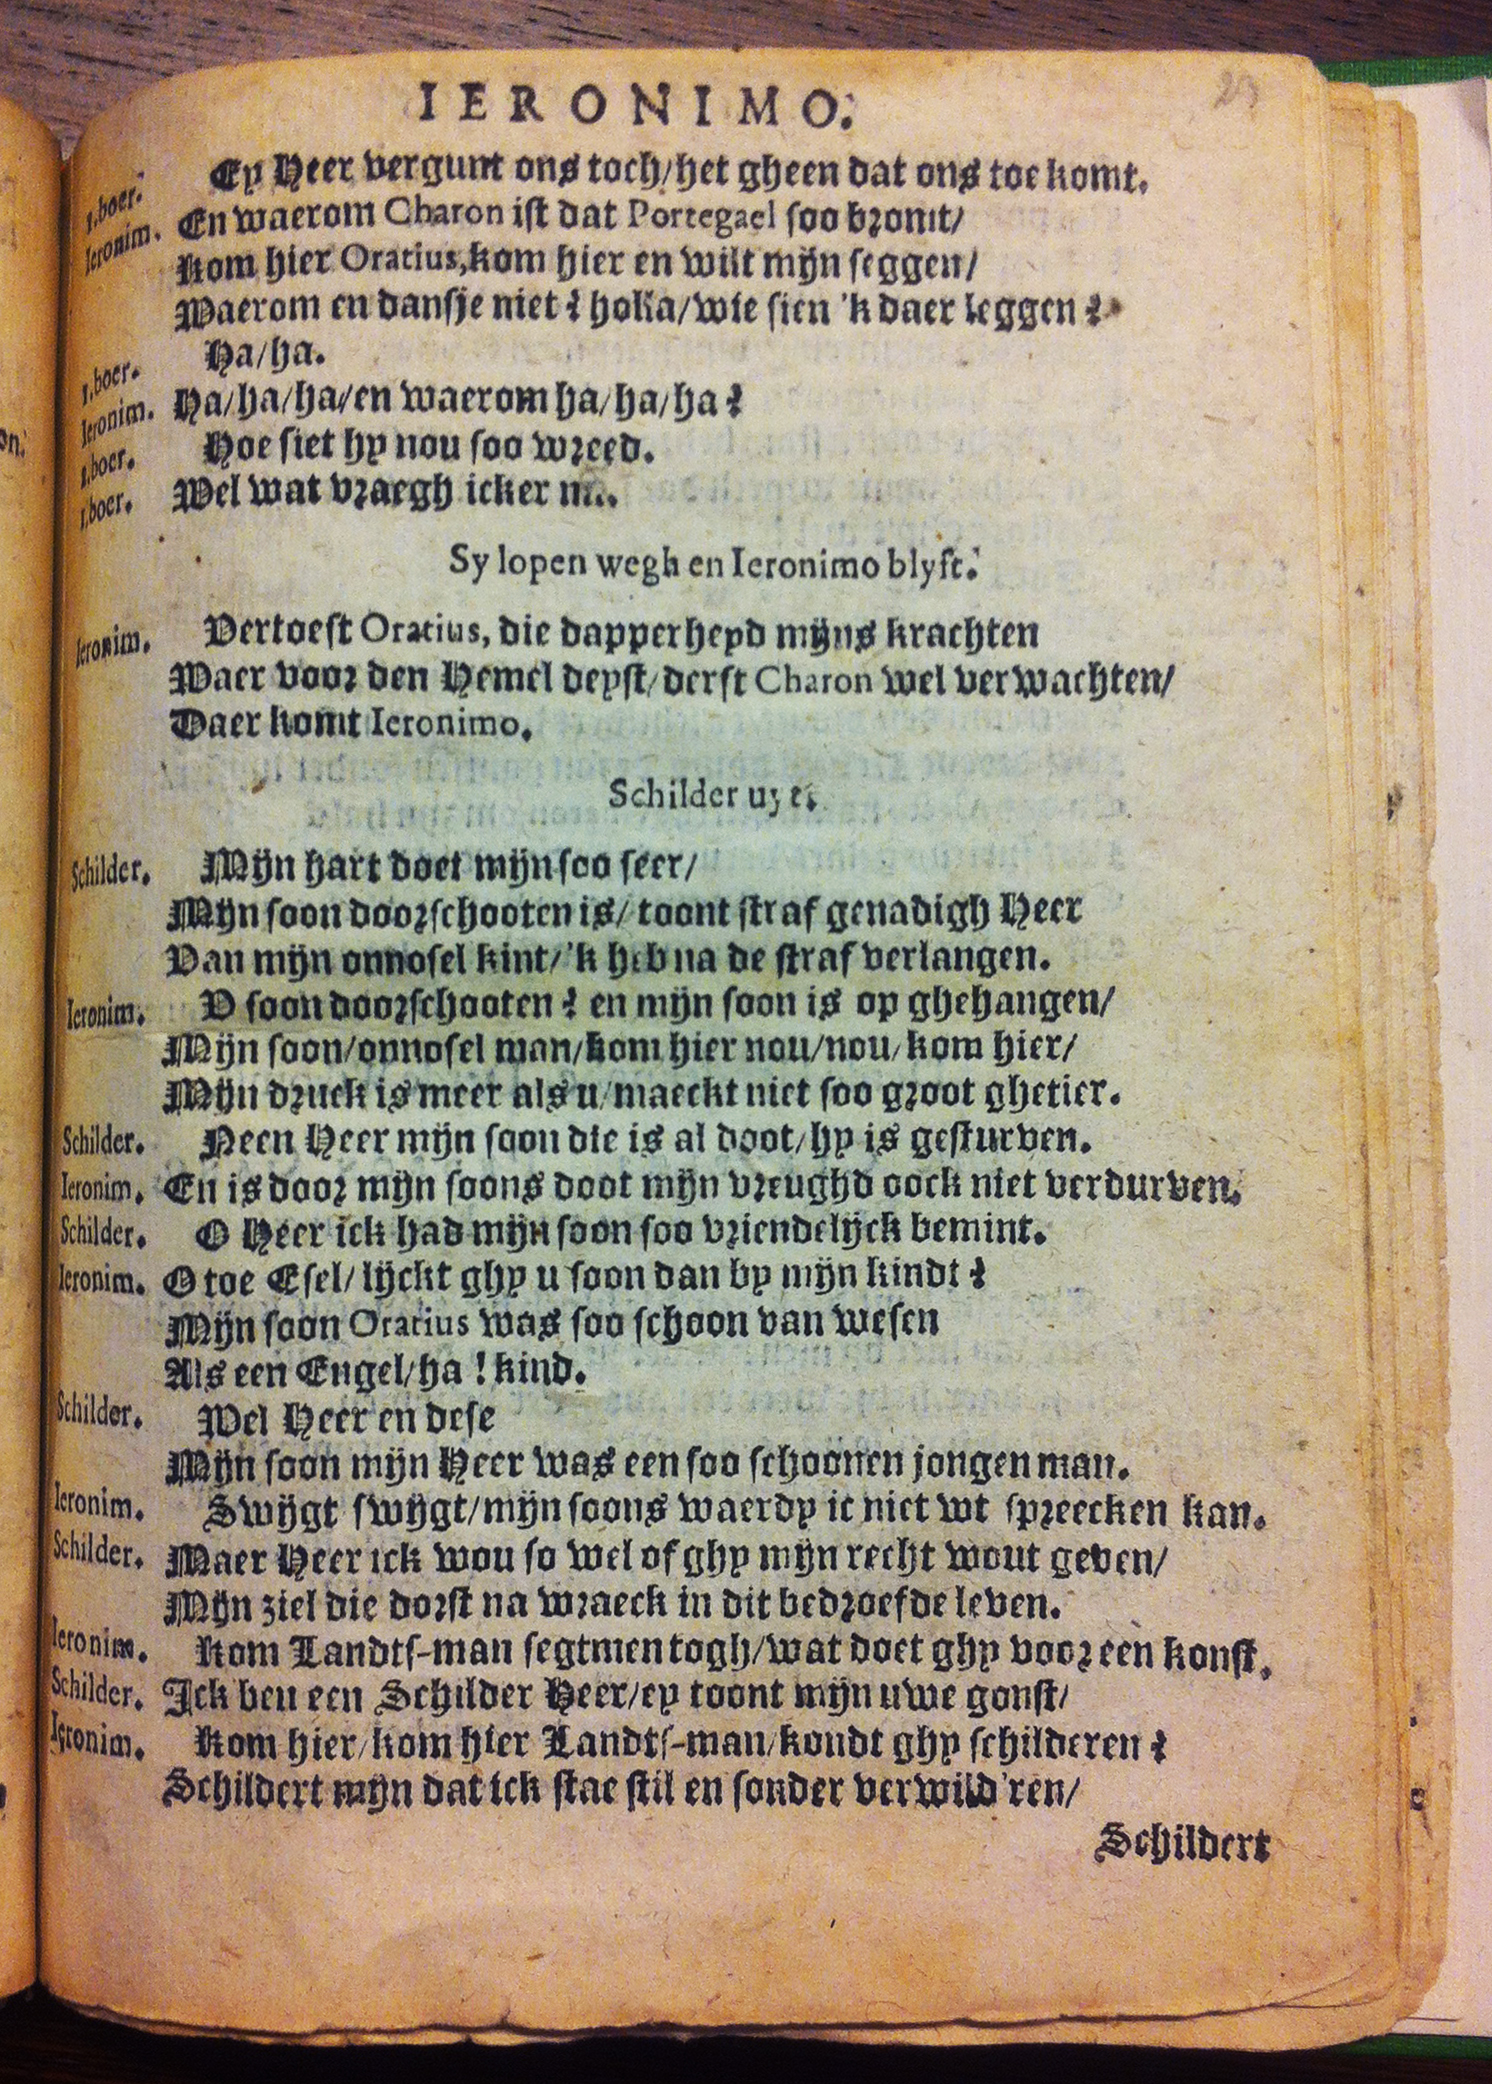 IERONIMO.
23
1.boer. Ey Heer vergunt ons toch/het gheen dat ons toe komt.
Ieronim. En waerom Charon ist dat Portegael soo bromt/
Kom hier Oratius,kom hier en wilt mijn seggen/
Waerom en dansje niet? holla/wie sien 'k daer leggen?
1.boer. Ha/ha.
Ieronim. Ha/ha/ha/en waerom ha/ha/ha?
1.boer. Hoe siet hy nou soo wreed.
1.boer. Wel wat vraegh icker na.
Sy lopen wegh en Ieronimo blyft.
Ieronim. Vertoeft Oratius, die dapperheyd mijns krachten
Waer voor den Hemel deyst/derft Charon wel verwachten/
Daer komt Ieronimo.
Schilder uyt.
Schilder. Mijn hart doet mijn soo seer/
Mijn soon doorschooten is/toont straf genadigh Heer
Van mijn onnosel kint/'k heb na de straf verlangen.
Ieronim. V soon doorschooten? en mijn soon is op ghehangen/
Mijn soon/onnosel man/kom hier nou/nou/kom hier/
Mijn druck is meer als u/maeckt niet soo groot ghetier.
Schilder. Neen Heer mijn soon die is al doot/hy is gesturven.
Ieronim. En is door mijn soons doot mijn vreughd oock niet verdurven.
Schilder. O Heer ick had mijn soon soo vriendelijck bemint.
Ieronim. O toe Esel/lijckt ghy u soon dan by mijn kindt?
Mijn soon Oratius was soo schoon van wesen
Als een Engel/ha! kind.
Schilder. Wel Heer en dese
Mijn soon mijn Heer was een soo schoonen jongen man.
Ieronim. Swijgt swijgt/mijn soons waerdy ic niet wt spreecken kan.
Schilder. Maer Heer ick wou so wel of ghy mijn recht wout geven/
Mijn ziel die dorst na wraeck in dit bedroefde leven.
Ieronim. Kom Landts-man segtmen togh/wat doet ghy voor een konst.
Schilder. Ick ben een Schilder Heer/ey toont mijn uwe gonst/
Ieronim. Kom hier/kom hier Landts-man/kondt ghy schilderen?
Schildert mijn dat ick stae stil en sonder verwild'ren/
Schildert